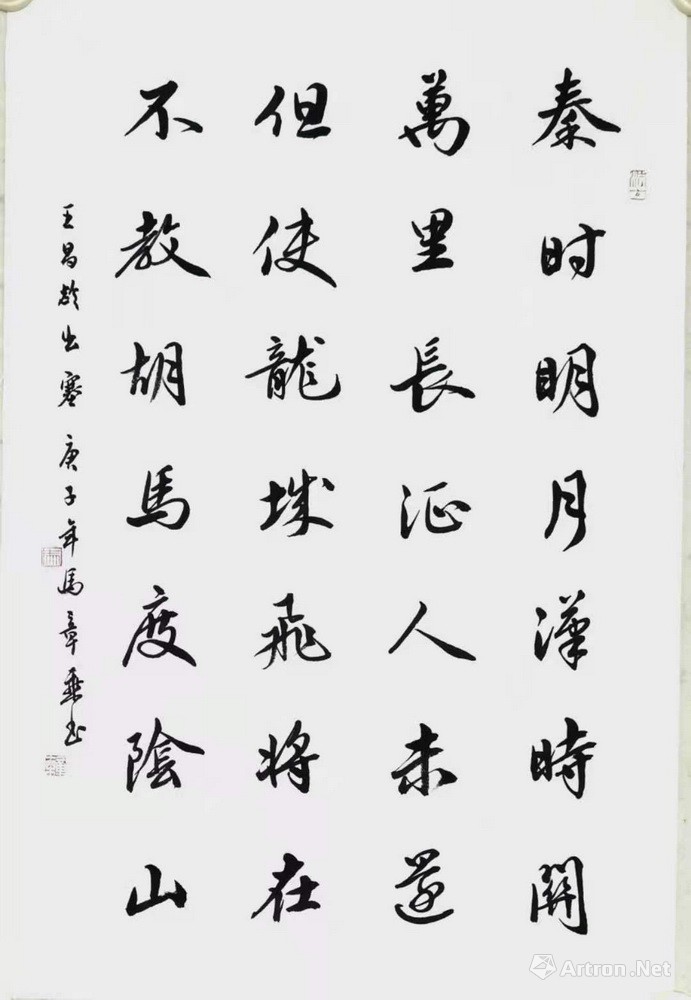 秦时明月漢時關
萬里長征人未還
但使龍城飛将在
不教胡馬度陰山
王昌齡出塞 庚子年馬章乘书
Artron.Net